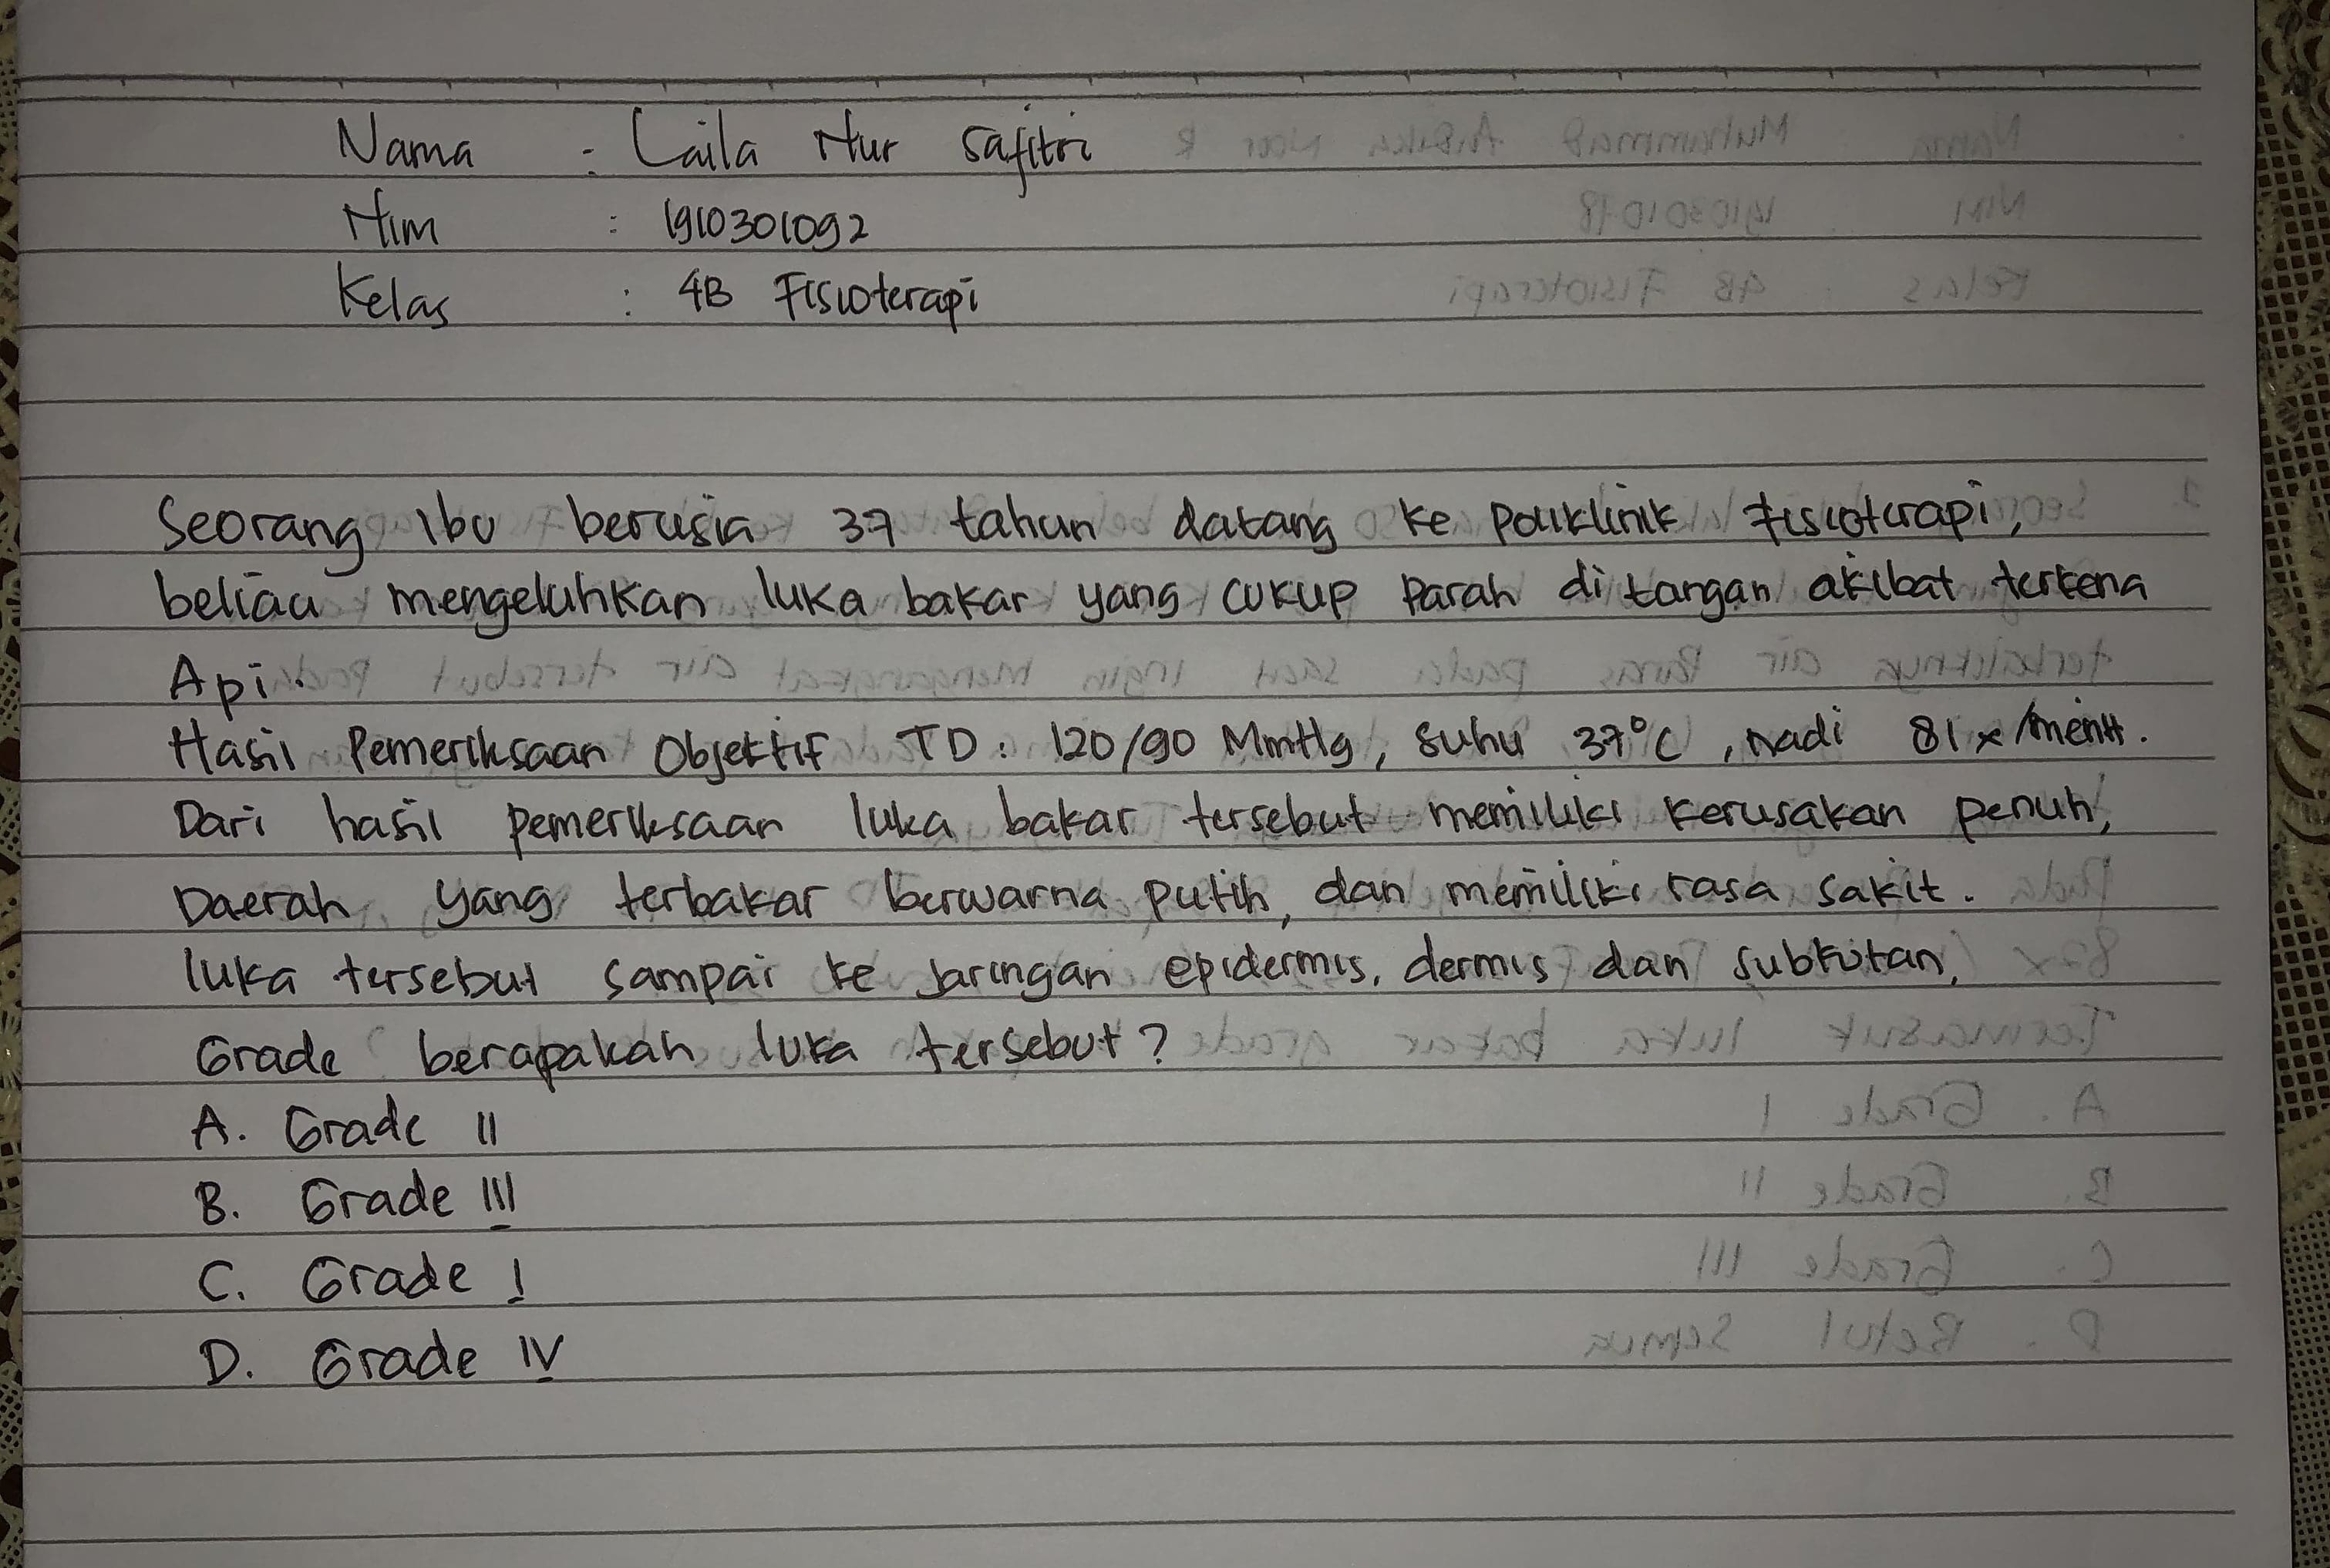 Nama : Laila Nur Safitri
Nim : 1910301092
Kelas : 4B Fisioterapi
Seorang ibu berusia 37 tahun datang ke Poliklinik Fisioterapi,
beliau mengeluhkan luka bakar yang cukup parah di tangan akibat terkena
Api.
Hasil Pemeriksaan Objektif TD : 120/90 MmHg, Suhu 37°C, Nadi 81 x/menit.
Dari hasil pemeriksaan luka bakar tersebut memiliki kerusakan penuh,
Daerah yang terbakar berwarna putih, dan memiliki rasa sakit.
luka tersebut sampai ke jaringan epidermis, dermis dan subkutan,
Grade berapakah luka tersebut?
A. Grade II
B. Grade III
C. Grade I
D. Grade IV